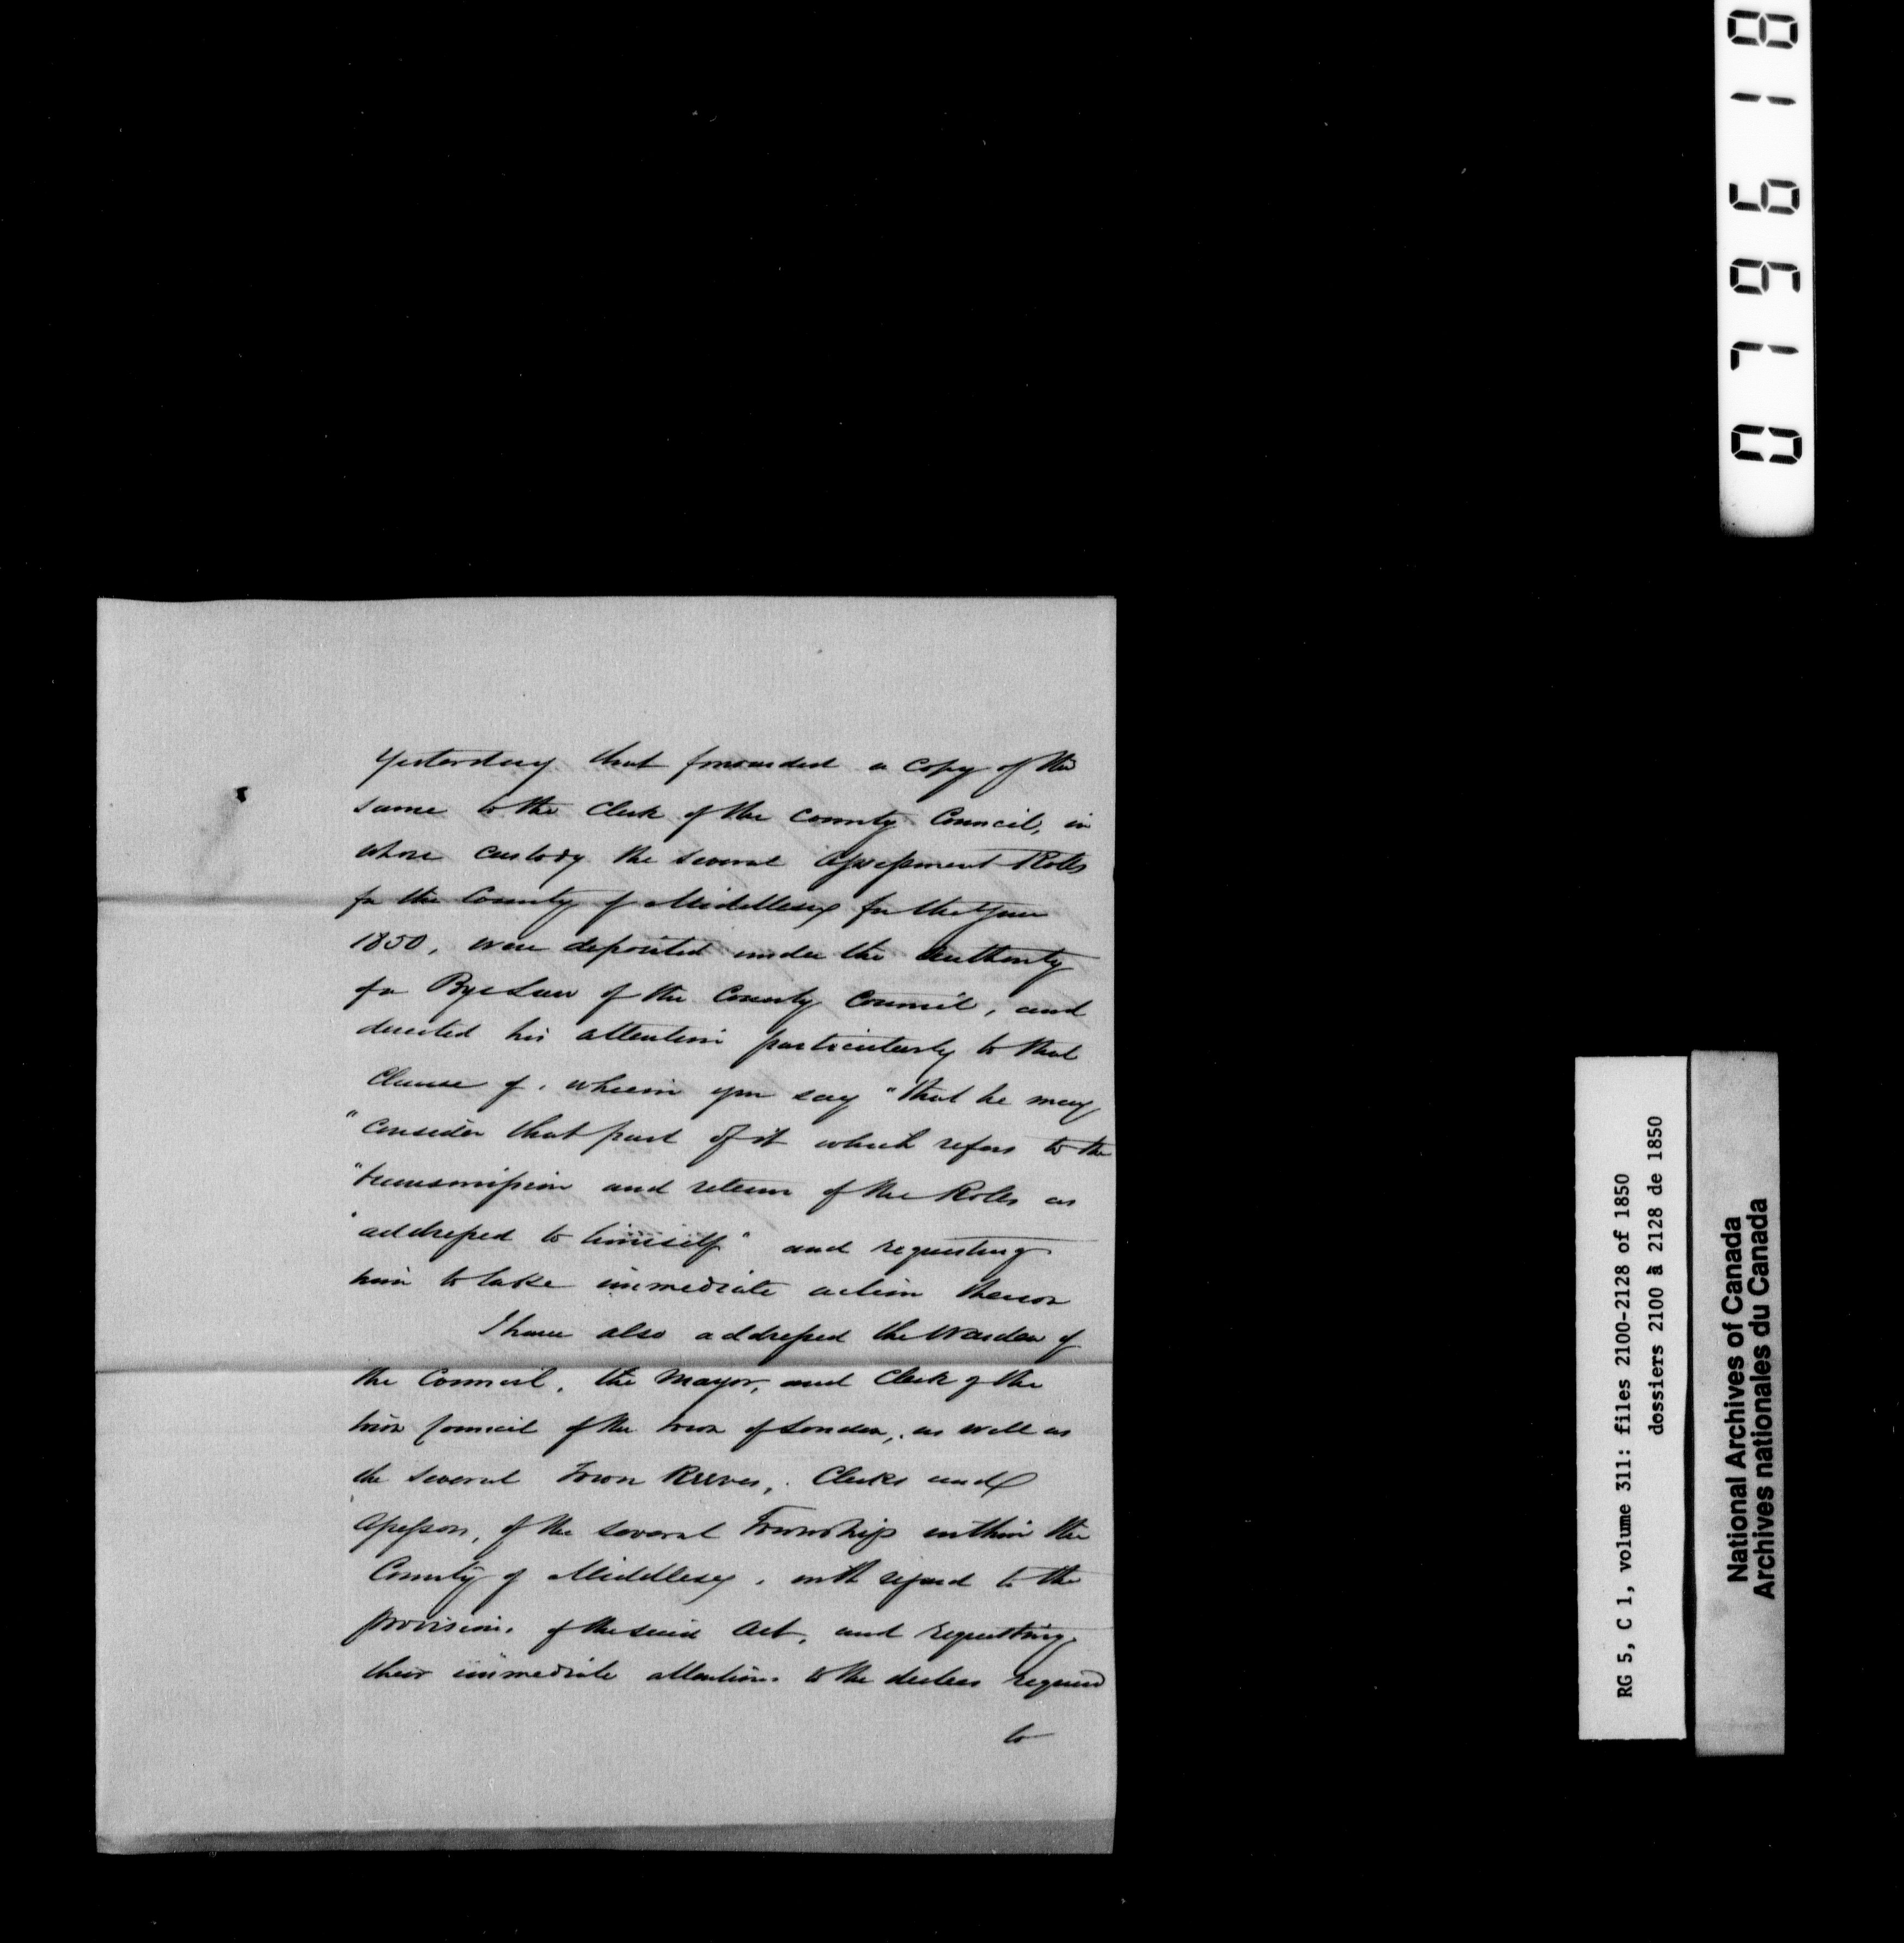 Yesterday that forwarded a copy of the
same to the Clerk of the County Council, in
whose custody the several Assessment Rolls
for the County of Middlesex for the Year
1850, were deposited under the authority
of a Bye Law of the County Council, and
directed his attention particularly to that
Clause of, wherein you say "that he may
"consider that part of it which refers to the
"transmission and return of the Rolls as
"addressed to himself" and requesting
him to take immediate action thereon
I have also addressed the Warden of
the Council, the Mayor, and Clerk of the
town Council of the town of London, as well as
the several Town Reeves, Clerks and
Assessors, of the several Townships within the
County of Middlesex, with regard to the
provisions of the said Act, and requesting
their immediate attention to the duties required
to
079618
RG 5, C 1, volume 311: files 2100-2128 of 1850
dossiers 2100 à 2128 de 1850
National Archives of Canada
Archives nationales du Canada